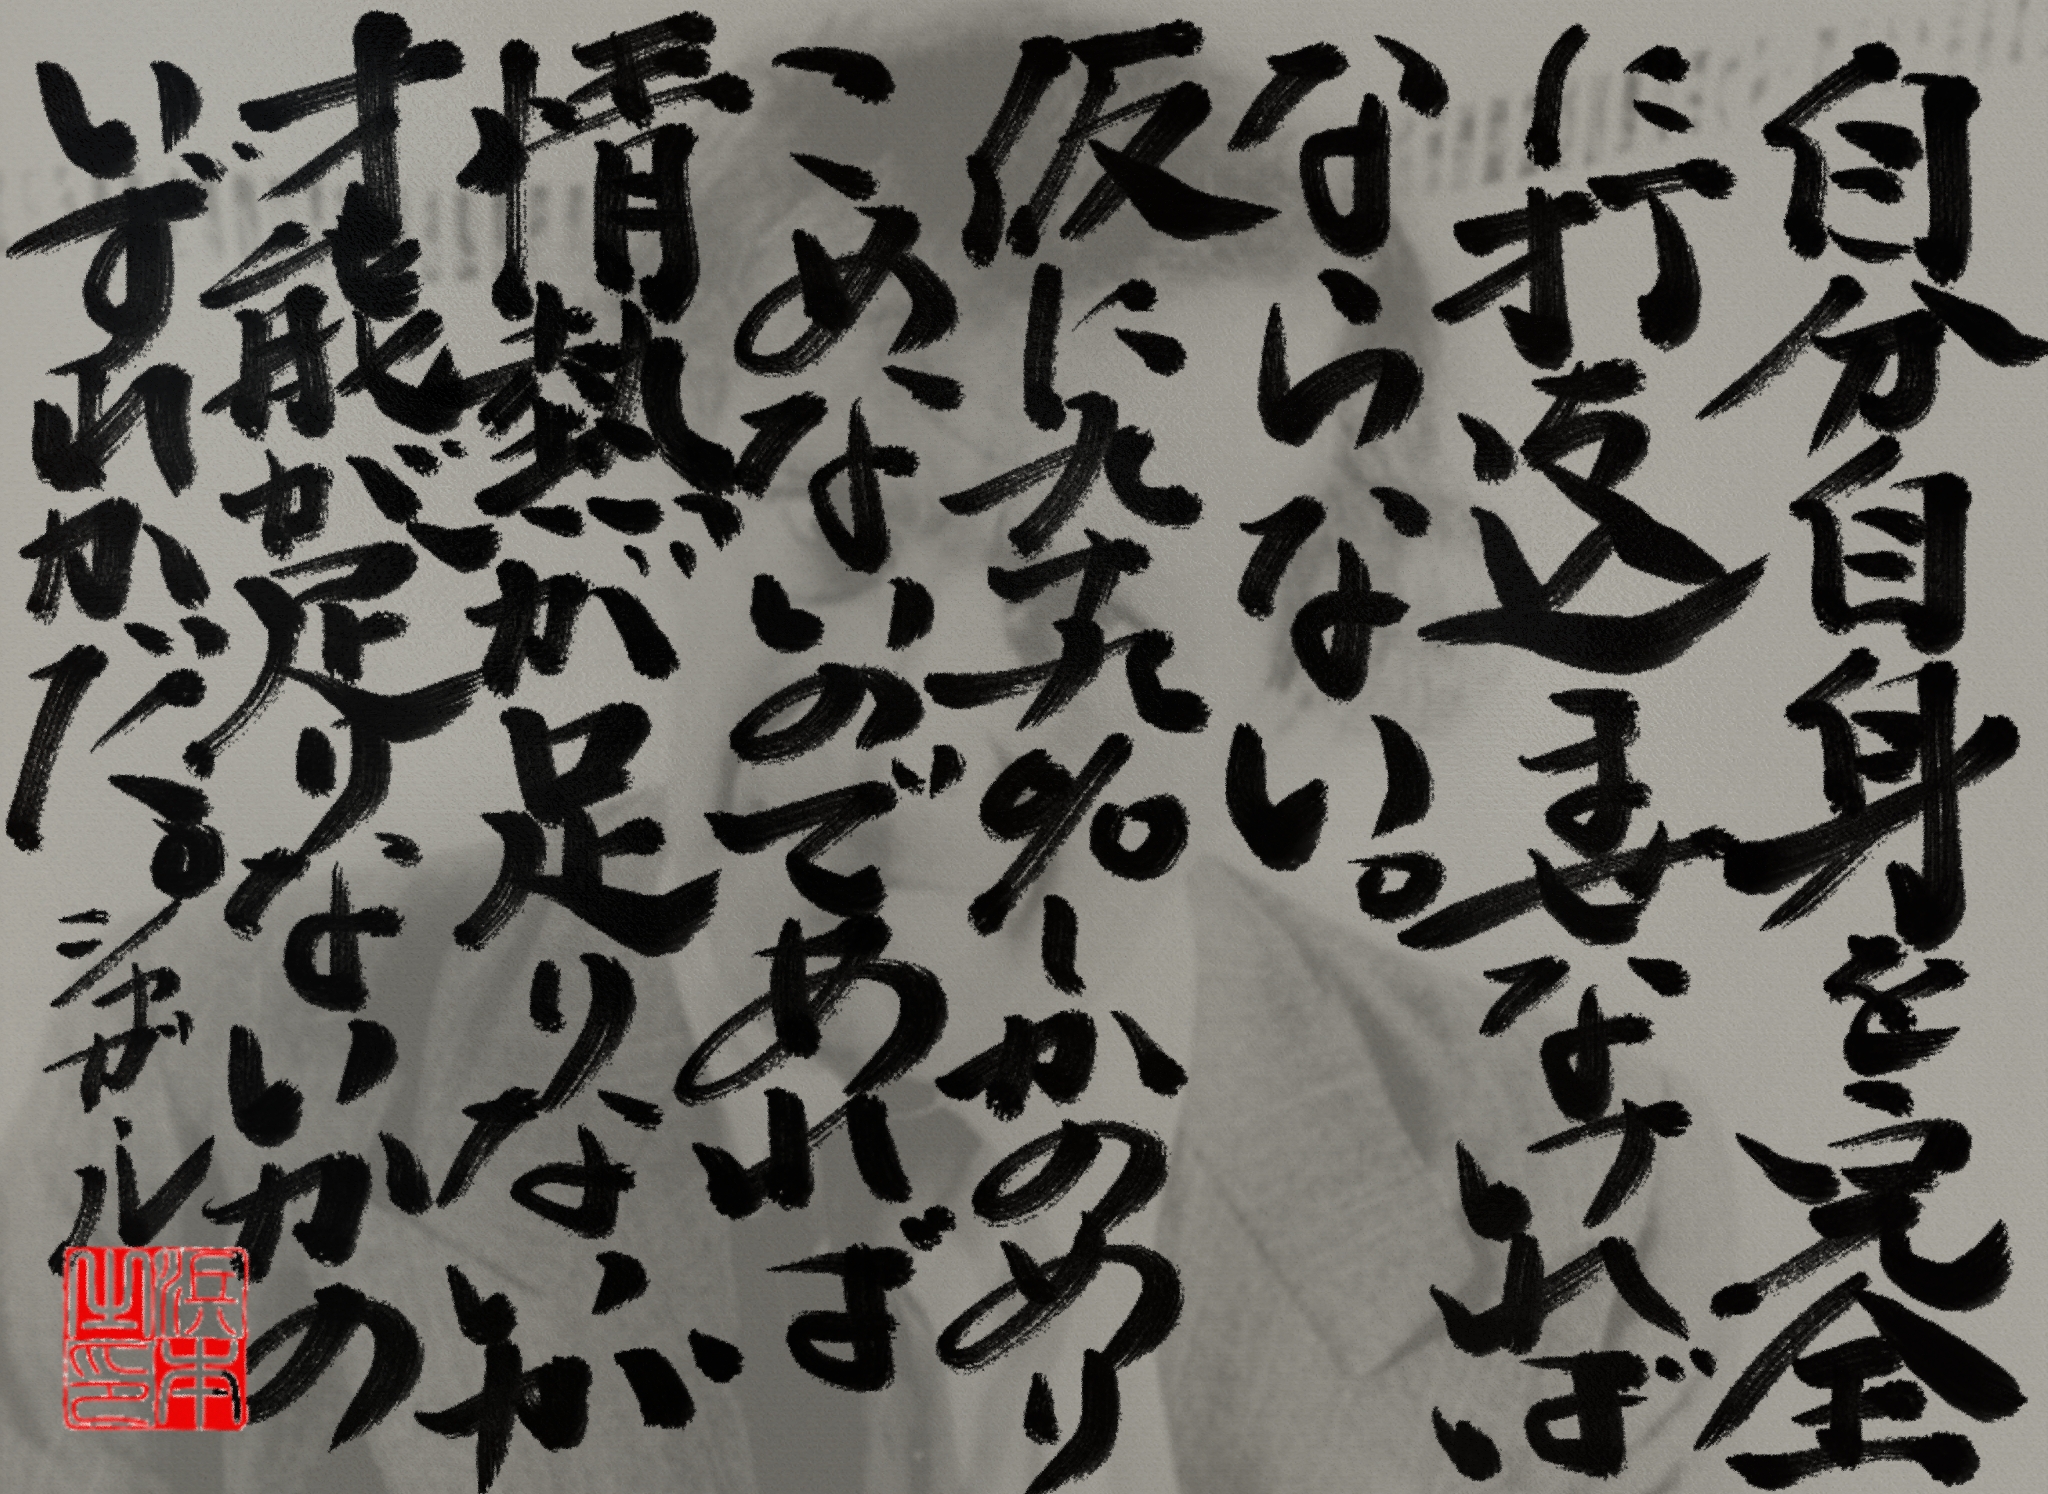 自分自身を完全
に打返ませなければ
ならない。
仮に九十九%しかのめり
こめないのであれば
情熱が足りないか
才能が足りないかの
いずれかだ
シャガール
浜本之印